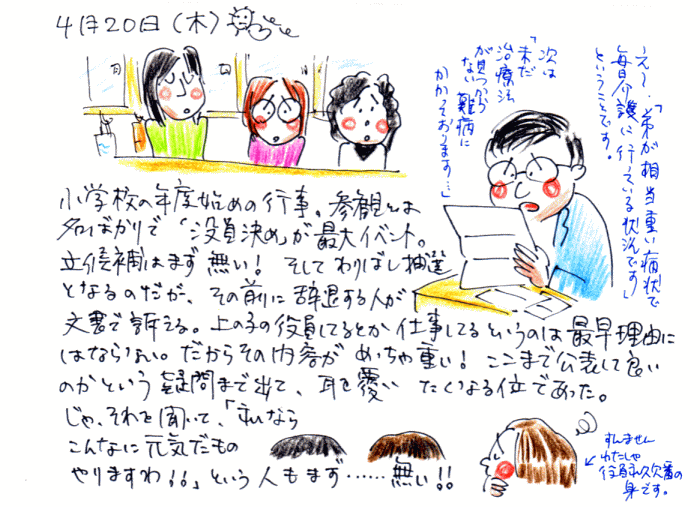 4月20日(木)
え〜、「弟が相当重い病状で
毎日介護に行っている状況です」
ということです。
次は
「未だ
治療法
が見つから
ない難病に
かかっております…」
小学校の年度始めの行事。参観とは
名ばかりで「役員決め」が最大イベント。
立候補はまず無い！そしてわりばし抽選
となるのだが、その前に辞退する人が
文書で訴える。上の子の役員してるとか仕事してるというのは最早理由に
はならない。だからその内容がめっちゃ重い！ここまで公表して良い
のかという疑問まで出て、耳を覆いたくなる位であった。
じゃ、それを聞いて、「私なら
こんなに元気だもの
やりますわ！！」という人もまず……無い！！
すんません
わたしゃ
役員永久欠番の
身です。